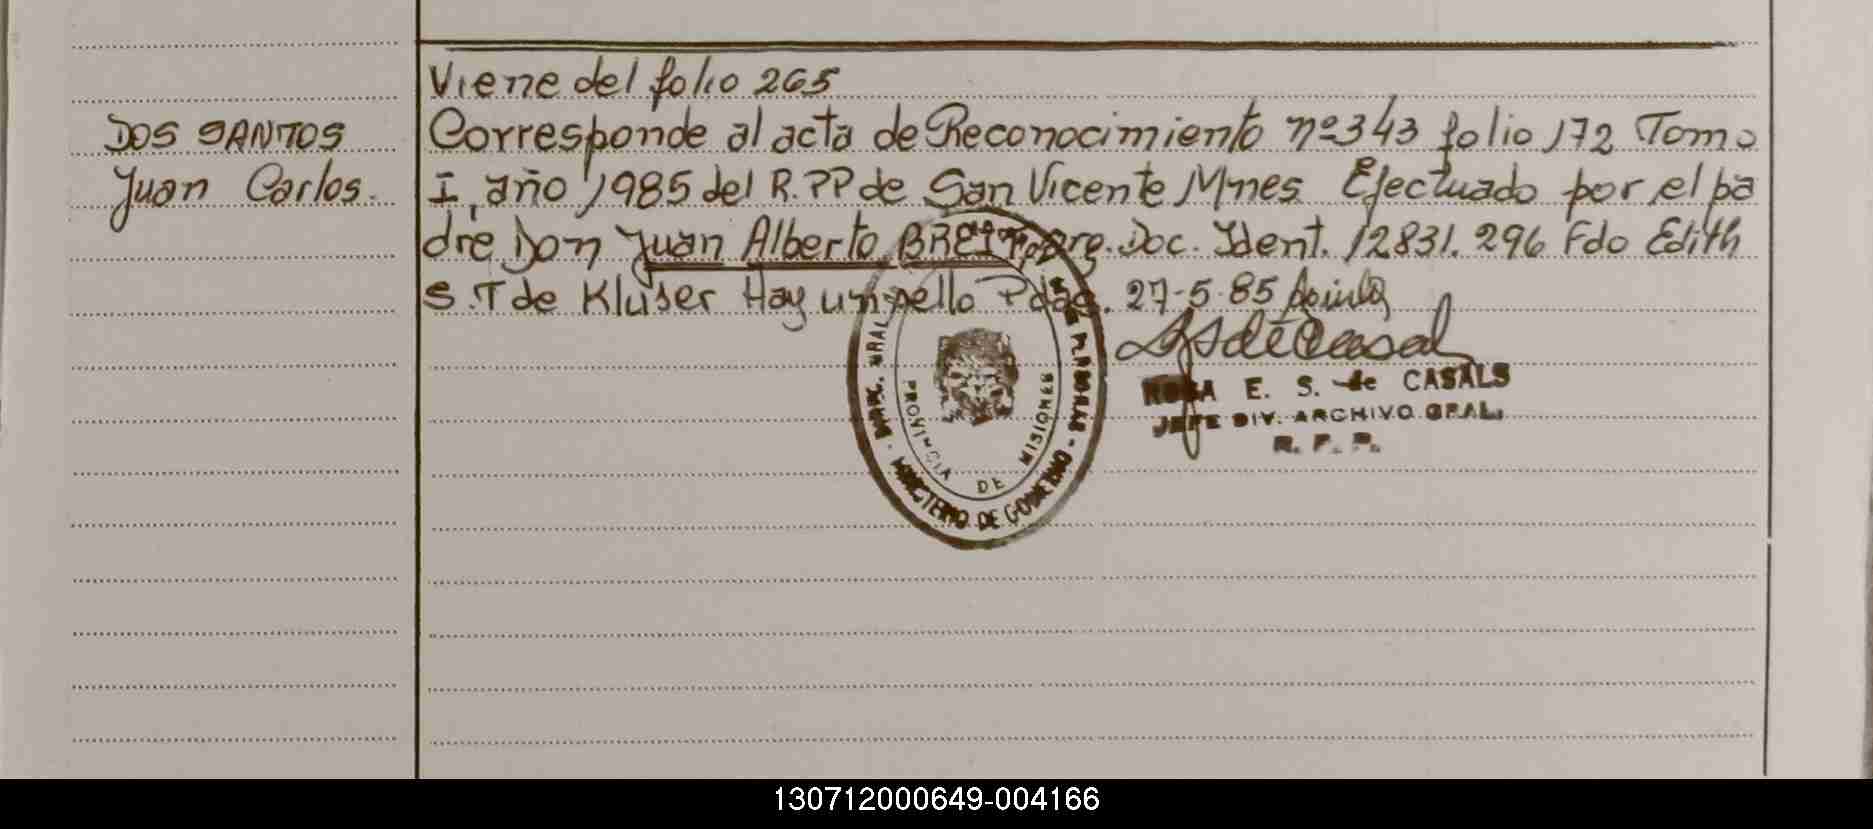 Viene del folio 265
DOS SANTOS
Juan Carlos.
Corresponde al acta de Reconocimiento nº 343 folio 172 Tomo
I, año 1985 del R.PP de San Vicente Mnes. Efectuado por el pa
dre Don Juan Alberto Arg. Doc. Ident. 12831.296 Fdo Edith
S.T de Klüser Hay un sello Pdas. 27-5-85
E. S. de CASALS
JEFE DIV. ARCHIVO GRAL.
R. P. P.
DIREC. GRAL. PERSONAS - MINISTERIO DE GOBIERNO
PROVINCIA DE MISIONES
130712000649-004166